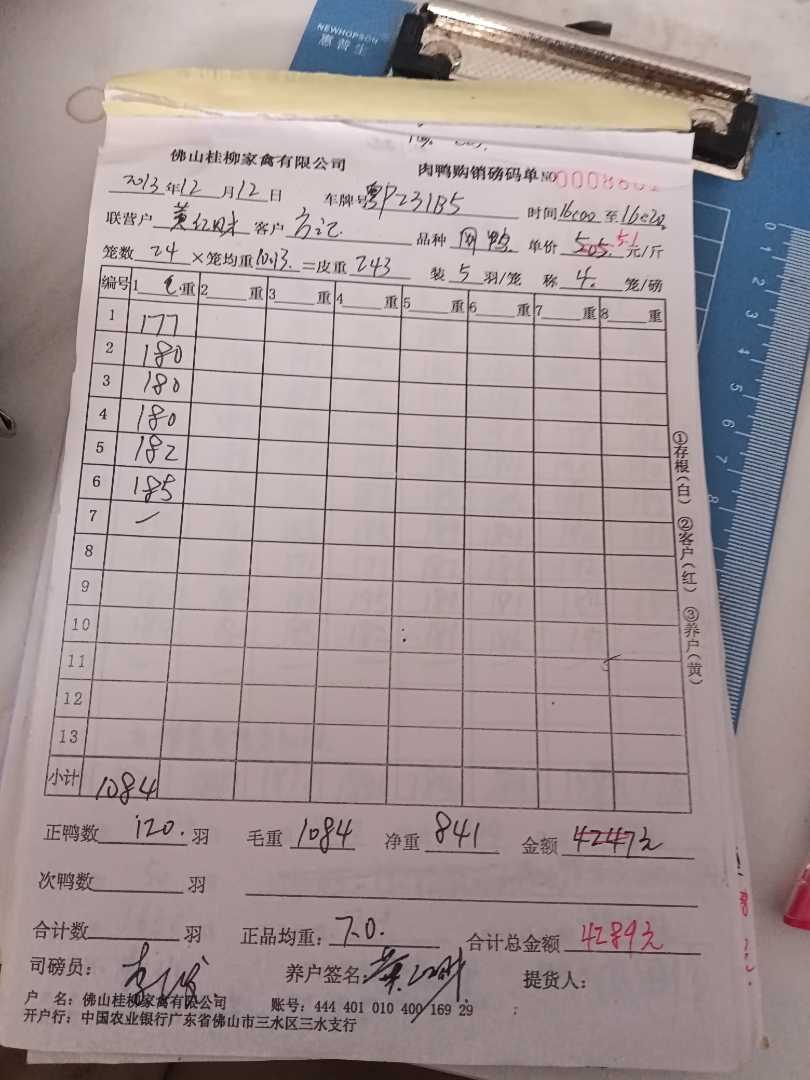 NEWHOPSON
惠普生
佛山桂柳家禽有限公司 肉鸭购销磅码单 NO
2013年12月12日 车牌号粤P231B5 时间 至
联营户 客户 方记 品种 肉鸭 单价 5.05. 5.1 元/斤
笼数 24 ×笼均重10.13. =皮重 243 装 5 羽/笼 称 4. 笼/磅
编号 1 毛 重 2 重 3 重 4 重 5 重 6 重 7 重 8 重
1 177
2 180
3 180
4 180
5 182
6 185
7 —
8
9
10
11
12
13
小计 1084
正鸭数 120. 羽 毛重 1084 净重 841 金额 4247元
次鸭数 羽
合计数 羽 正品均重: 7.0. 合计总金额 4289元
司磅员: 养户签名: 提货人:
户 名: 佛山桂柳家禽有限公司 账号: 444 401 010 400 169 29
开户行: 中国农业银行广东省佛山市三水区三水支行
①存根(白) ②客户(红) ③养户(黄)
0 1 2 3 4 5 6 7 8